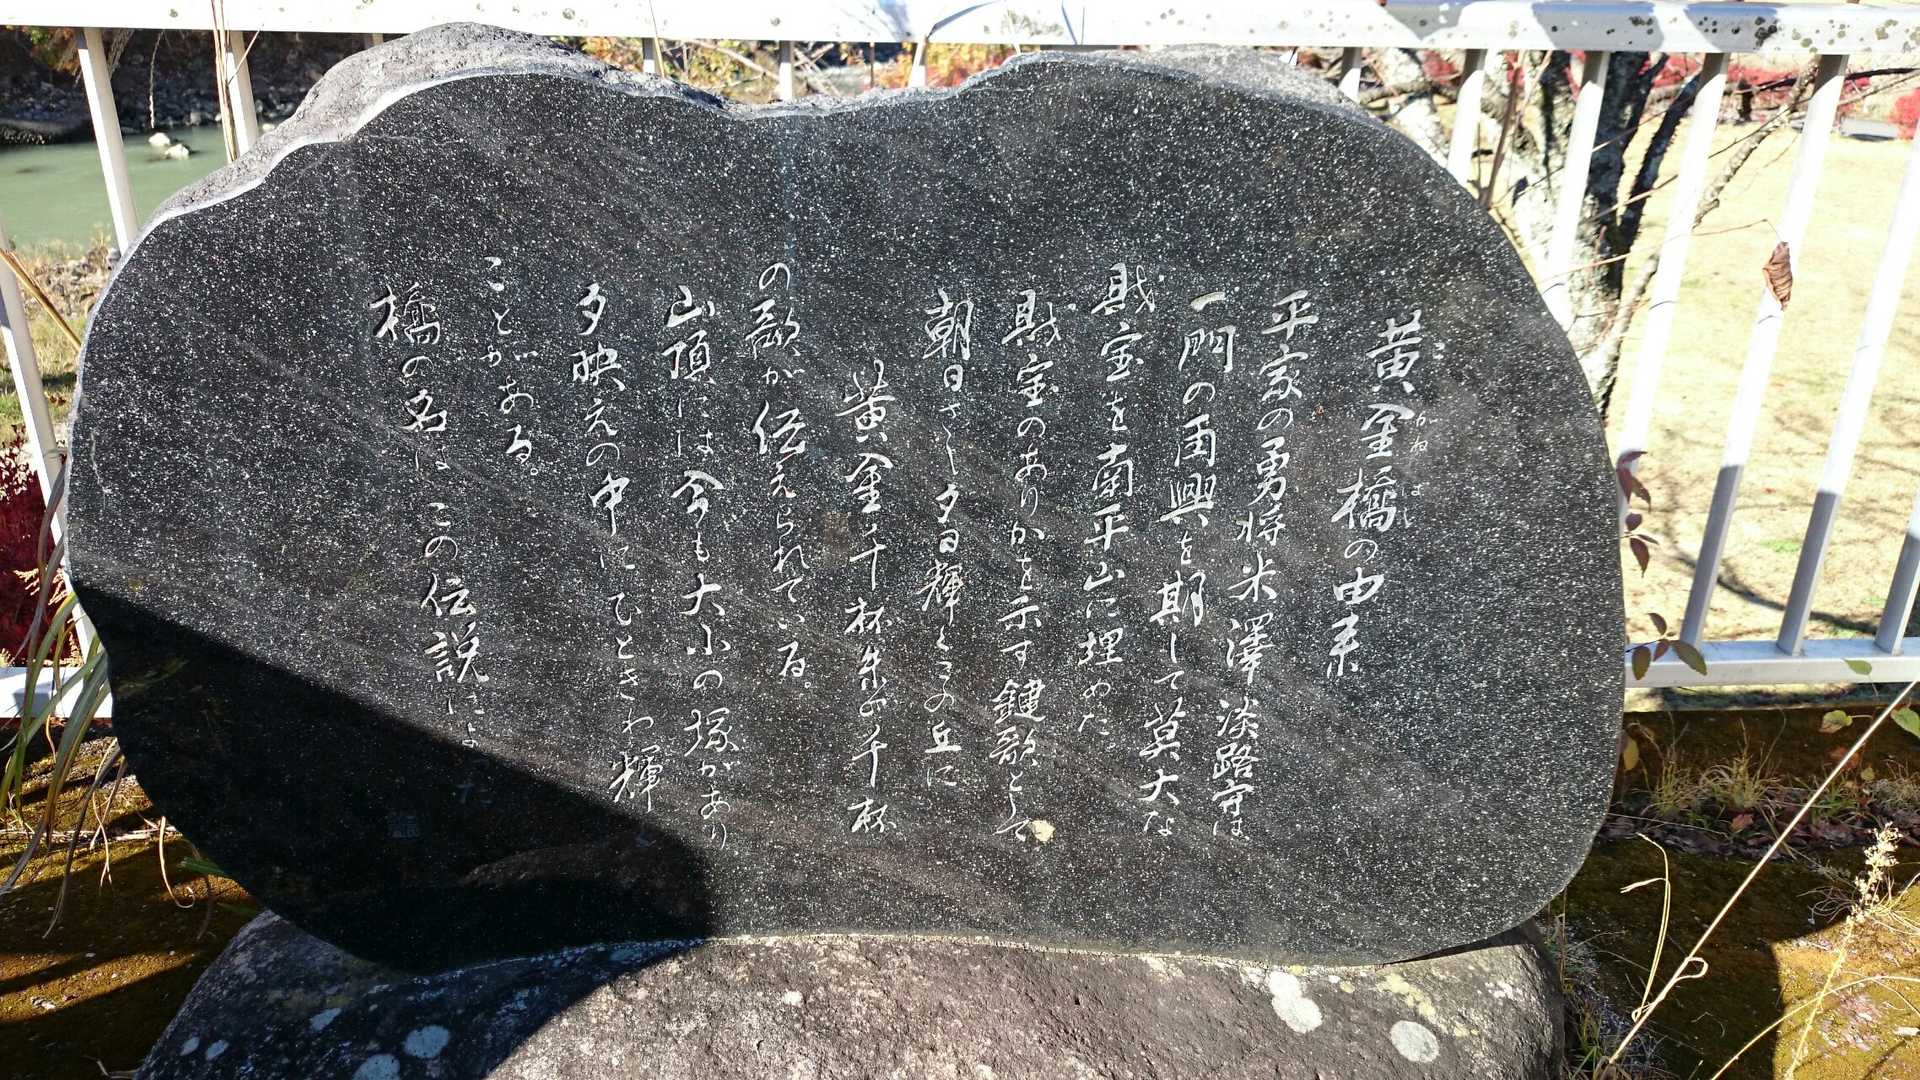 黄金橋の由来
こがねはし
平家の勇将米澤淡路守は
一門の再興を期して莫大な
財宝を南平山に埋めた。
財宝のありかを示す鍵歌として
朝日さし夕日輝くこの丘に
黄金千杯朱千杯
の歌が伝えられている。
山頂には今も大小の塚があり
夕映えの中にひときわ輝
ことがある。
橋の名はこの伝説によ